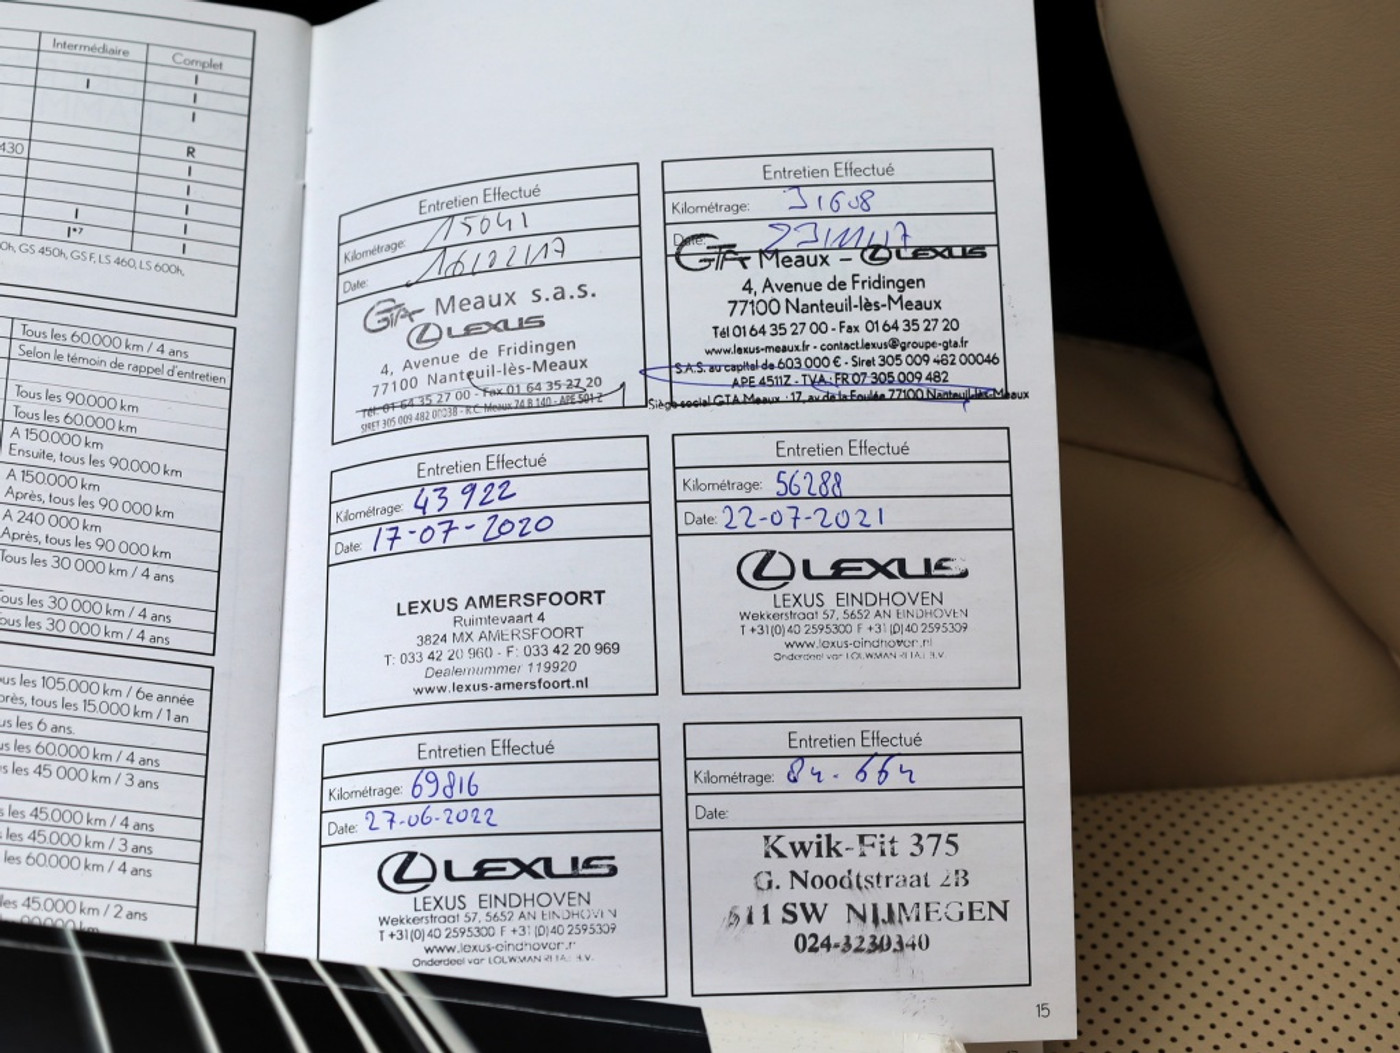 Intermédiaire Complet
I I
I
I
430 R
I
I
I I
I*7 I
0h, GS 450h, GS F, LS 460, LS 600h,
Tous les 60.000 km / 4 ans
Selon le témoin de rappel d'entretien
Tous les 90.000 km
Tous les 60.000 km
A 150.000 km
Ensuite, tous les 90.000 km
A 150.000 km
Après, tous les 90 000 km
A 240 000 km
Après, tous les 90 000 km
Tous les 30 000 km / 4 ans
ous les 30 000 km / 4 ans
ous les 30 000 km / 4 ans
us les 105.000 km / 6e année
près, tous les 15.000 km / 1 an
us les 6 ans.
us les 60.000 km / 4 ans
s les 45 000 km / 3 ans
s les 45.000 km / 4 ans
les 45.000 km / 3 ans
les 60.000 km / 4 ans
les 45.000 km / 2 ans
Entretien Effectué
Kilométrage: 15041
Date: 16/02/17
GTA Meaux s.a.s.
LEXUS
4, Avenue de Fridingen
77100 Nanteuil-lès-Meaux
Tél. 01 64 35 27 00 - Fax 01 64 35 27 20
SIRET 305 009 482 00038 - R.C. Meaux 74 B 140 - APE 501 Z
Entretien Effectué
Kilométrage: 31608
Date: 23/11/17
GTA Meaux - LEXUS
4, Avenue de Fridingen
77100 Nanteuil-lès-Meaux
Tél 01 64 35 27 00 - Fax 01 64 35 27 20
www.lexus-meaux.fr - contact.lexus@groupe-gta.fr
S.A.S. au capital de 603 000 € - Siret 305 009 482 00046
APE 4511Z - TVA : FR 07 305 009 482
Siège social GTA Meaux - 17, av de la Foulée 77100 Nanteuil-lès-Meaux
Entretien Effectué
Kilométrage: 43 922
Date: 17-07-2020
LEXUS AMERSFOORT
Ruimtevaart 4
3824 MX AMERSFOORT
T: 033 42 20 960 - F: 033 42 20 969
Dealernummer 119920
www.lexus-amersfoort.nl
Entretien Effectué
Kilométrage: 56288
Date: 22-07-2021
LEXUS
LEXUS EINDHOVEN
Wekkerstraat 57, 5652 AN EINDHOVEN
T +31(0)40 2595300 F +31(0)40 2595309
www.lexus-eindhoven.nl
Onderdeel van LOUWMAN
Entretien Effectué
Kilométrage: 69816
Date: 27-06-2022
LEXUS
LEXUS EINDHOVEN
Wekkerstraat 57, 5652 AN EINDHOVEN
T +31(0)40 2595300 F +31(0)40 2595309
www.lexus-eindhoven.nl
Onderdeel van LOUWMAN
Entretien Effectué
Kilométrage: 84.664
Date:
Kwik-Fit 375
G. Noodtstraat 2B
511 SW NIJMEGEN
024-3230340
15